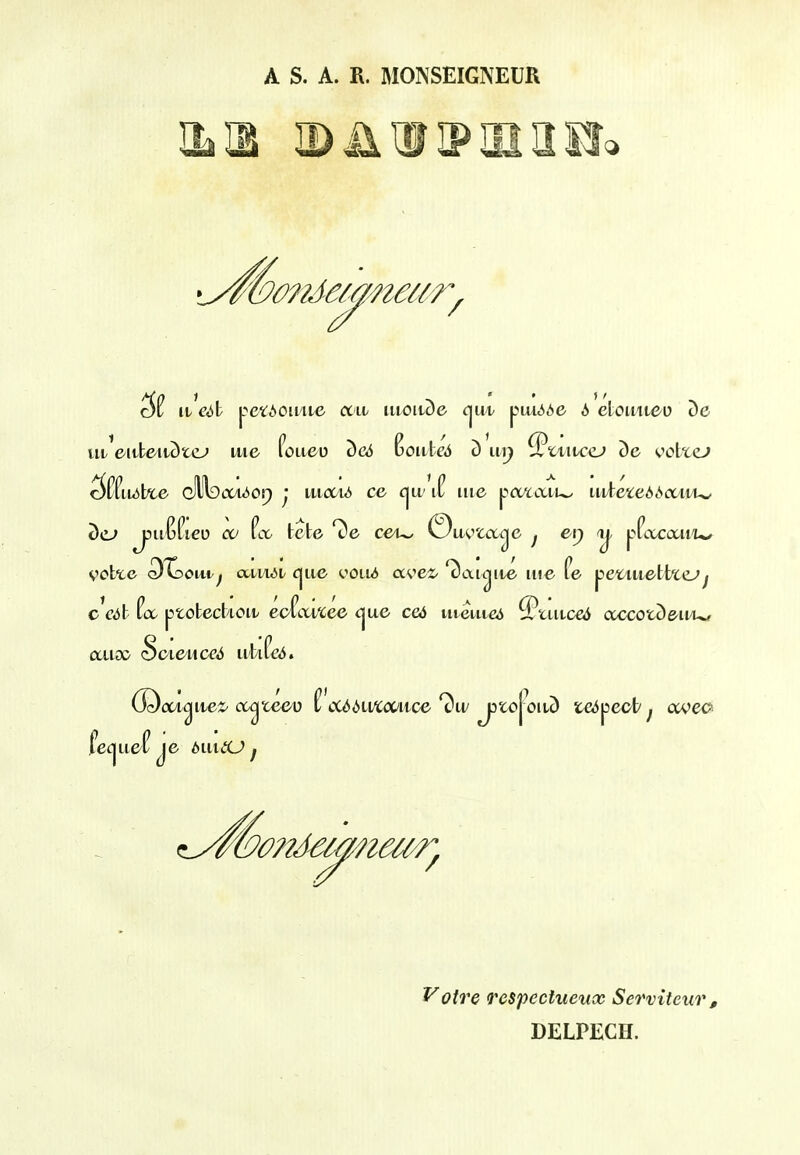 A S. A. R. MONSEIGNEUR
LE DAUPHIN.
Monseigneur,
Il n'est personne au monde qui puisse s'étonner de
m'entendre me louer des bontés d'un Prince de votre
Illustre Maison ; mais ce qu'il me paraît intéressant
de publier à la tête de cet Ouvrage, en y plaçant
votre Nom, ainsi que vous avez daigné me le permettre,
c'est la protection éclairée que ces mêmes Princes accordent
aux Sciences utiles.
Daignez agréer l'assurance du profond respect, avec
lequel je suis,
Monseigneur,
Votre respectueux Serviteur,
DELPECH.